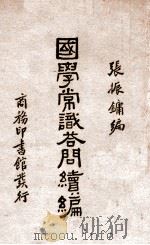 張振鏞編
國學常識答問續編
商務印書館發行